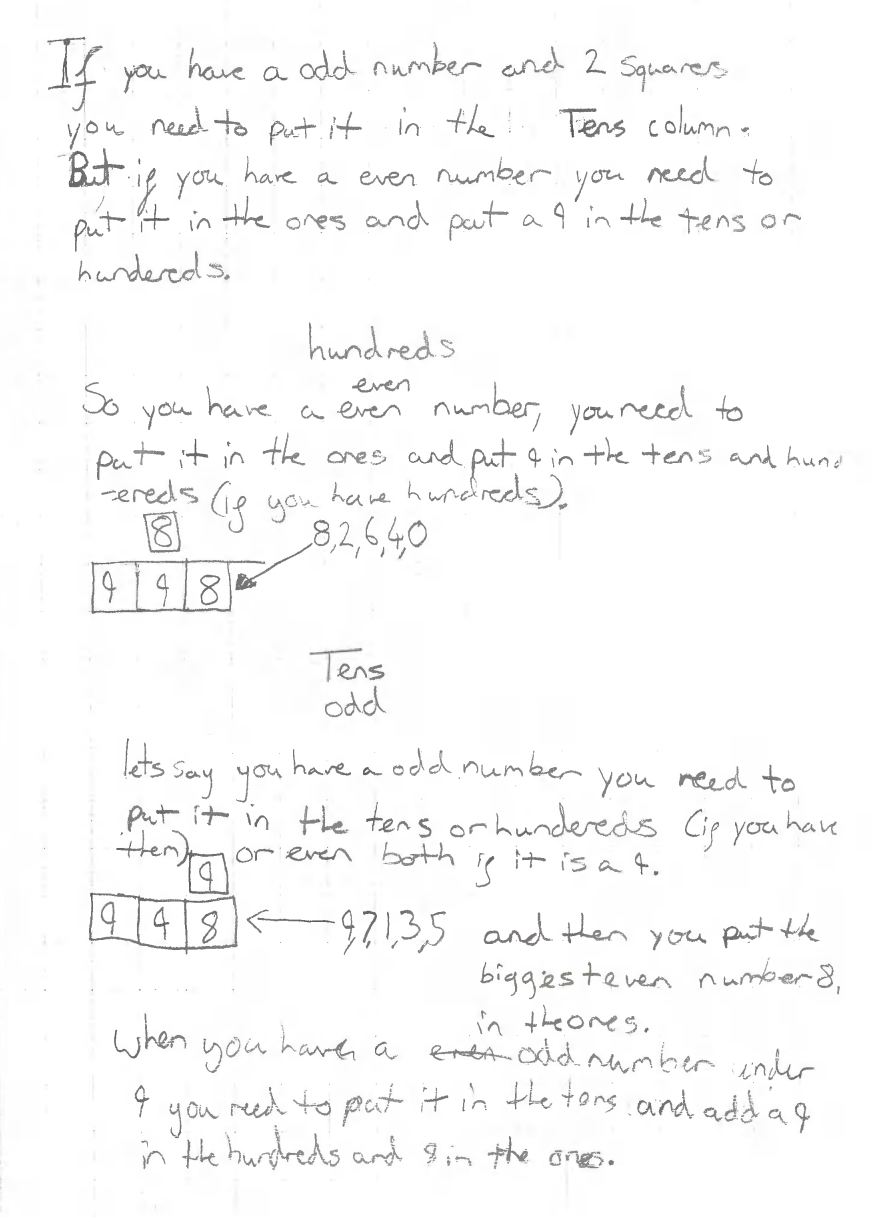 If you have a odd number and 2 squares
you need to put it in the Tens column.
But if you have a even number you need to
put it in the ones and put a 9 in the tens or
hundereds.
hundreds
even
So you have a even number, you need to
put it in the ones and put 9 in the tens and hund
-ereds (if you have hundreds).
8
8,2,6,4,0
9 9 8
Tens
odd
lets say you have a odd number you need to
put it in the tens or hundereds (if you have
then) or even both if it is a 9.
9
9 9 8
9,7,1,3,5 and then you put the
biggest even number 8,
in the ones.
When you have a even odd number under
9 you need to put it in the tens and add a 9
in the hundreds and 8 in the ones.